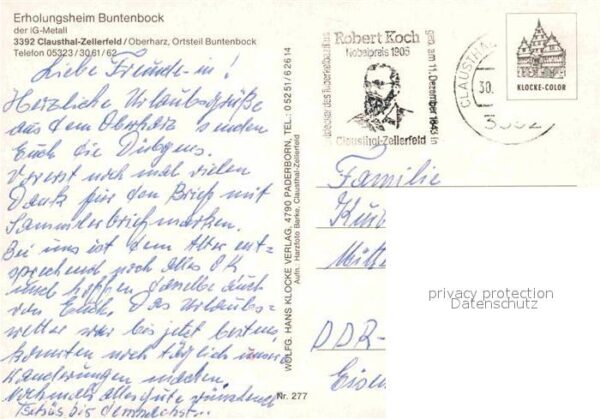 Erholungsheim Buntenbock
der IG-Metall
3392 Clausthal-Zellerfeld / Oberharz, Ortsteil Buntenbock
Telefon 05323 / 30 61 / 62
Liebe Freunde-in!
Herzliche Urlaubsgrüße
aus dem Oberharz senden
Euch die
Vorerst noch mal vielen
Dank für den Brief mit
Sammlerbriefmarken.
Bei uns ist dem Alter ent-
sprechend noch alles OK
und hoffen dasselbe auch
von Euch. Das Urlaubs-
wetter war bis jetzt bestens,
konnten noch täglich unsere
Wanderungen machen.
Nochmals alles gute wünschend
Tschüs bis demnächst...
WOLFG. HANS KLOCKE VERLAG, 4790 PADERBORN, TEL.: 05251/62614
Aufn. Harzfoto Barke, Clausthal-Zellerfeld
Nr. 277
Robert Koch
Nobelpreis 1905
Entdecker des Tuberkelbazillus
geb. am 11. Dezember 1843 in
Clausthal-Zellerfeld
CLAUSTHAL
30.
3392
KLOCKE-COLOR
Familie
DDR-
privacy protection
Datenschutz